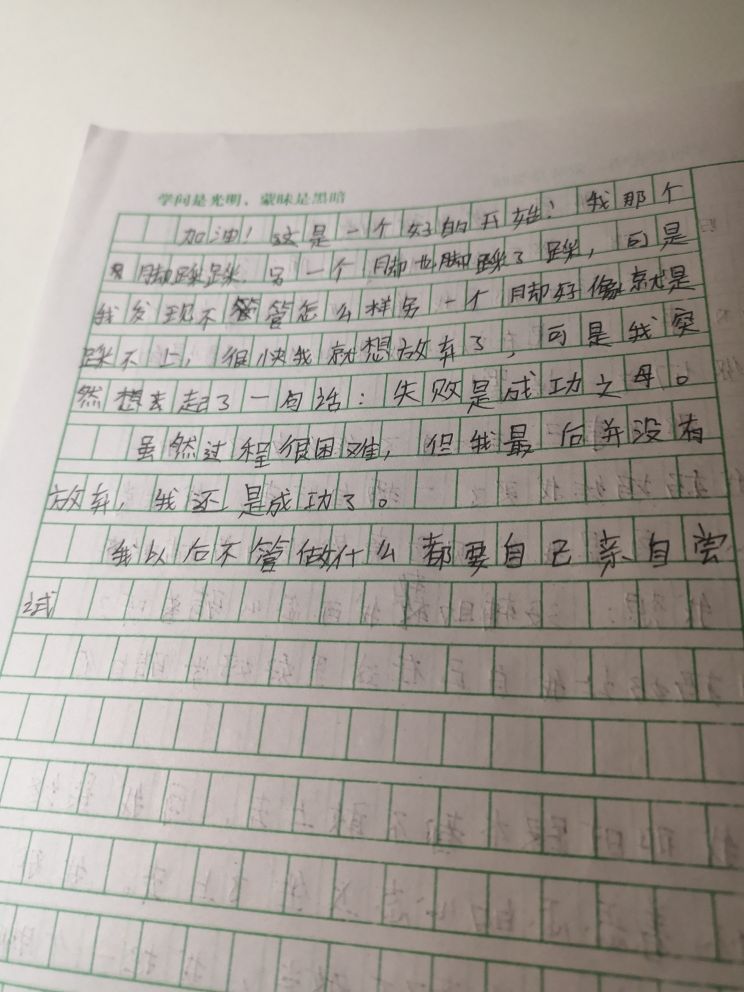 学问是光明，蒙昧是黑暗
加油！这是一个好的开始！我那个
脚踩踩，另一个脚也脚踩了踩，可是
我发现不管管怎么样另一个脚好像就是
踩不上，很快我就想放弃了，可是我突
然想去起了一句话：失败是成功之母。
虽然过程很困难，但我最后并没有
放弃，我还是成功了。
我以后不管做什么都要自己亲自尝
试